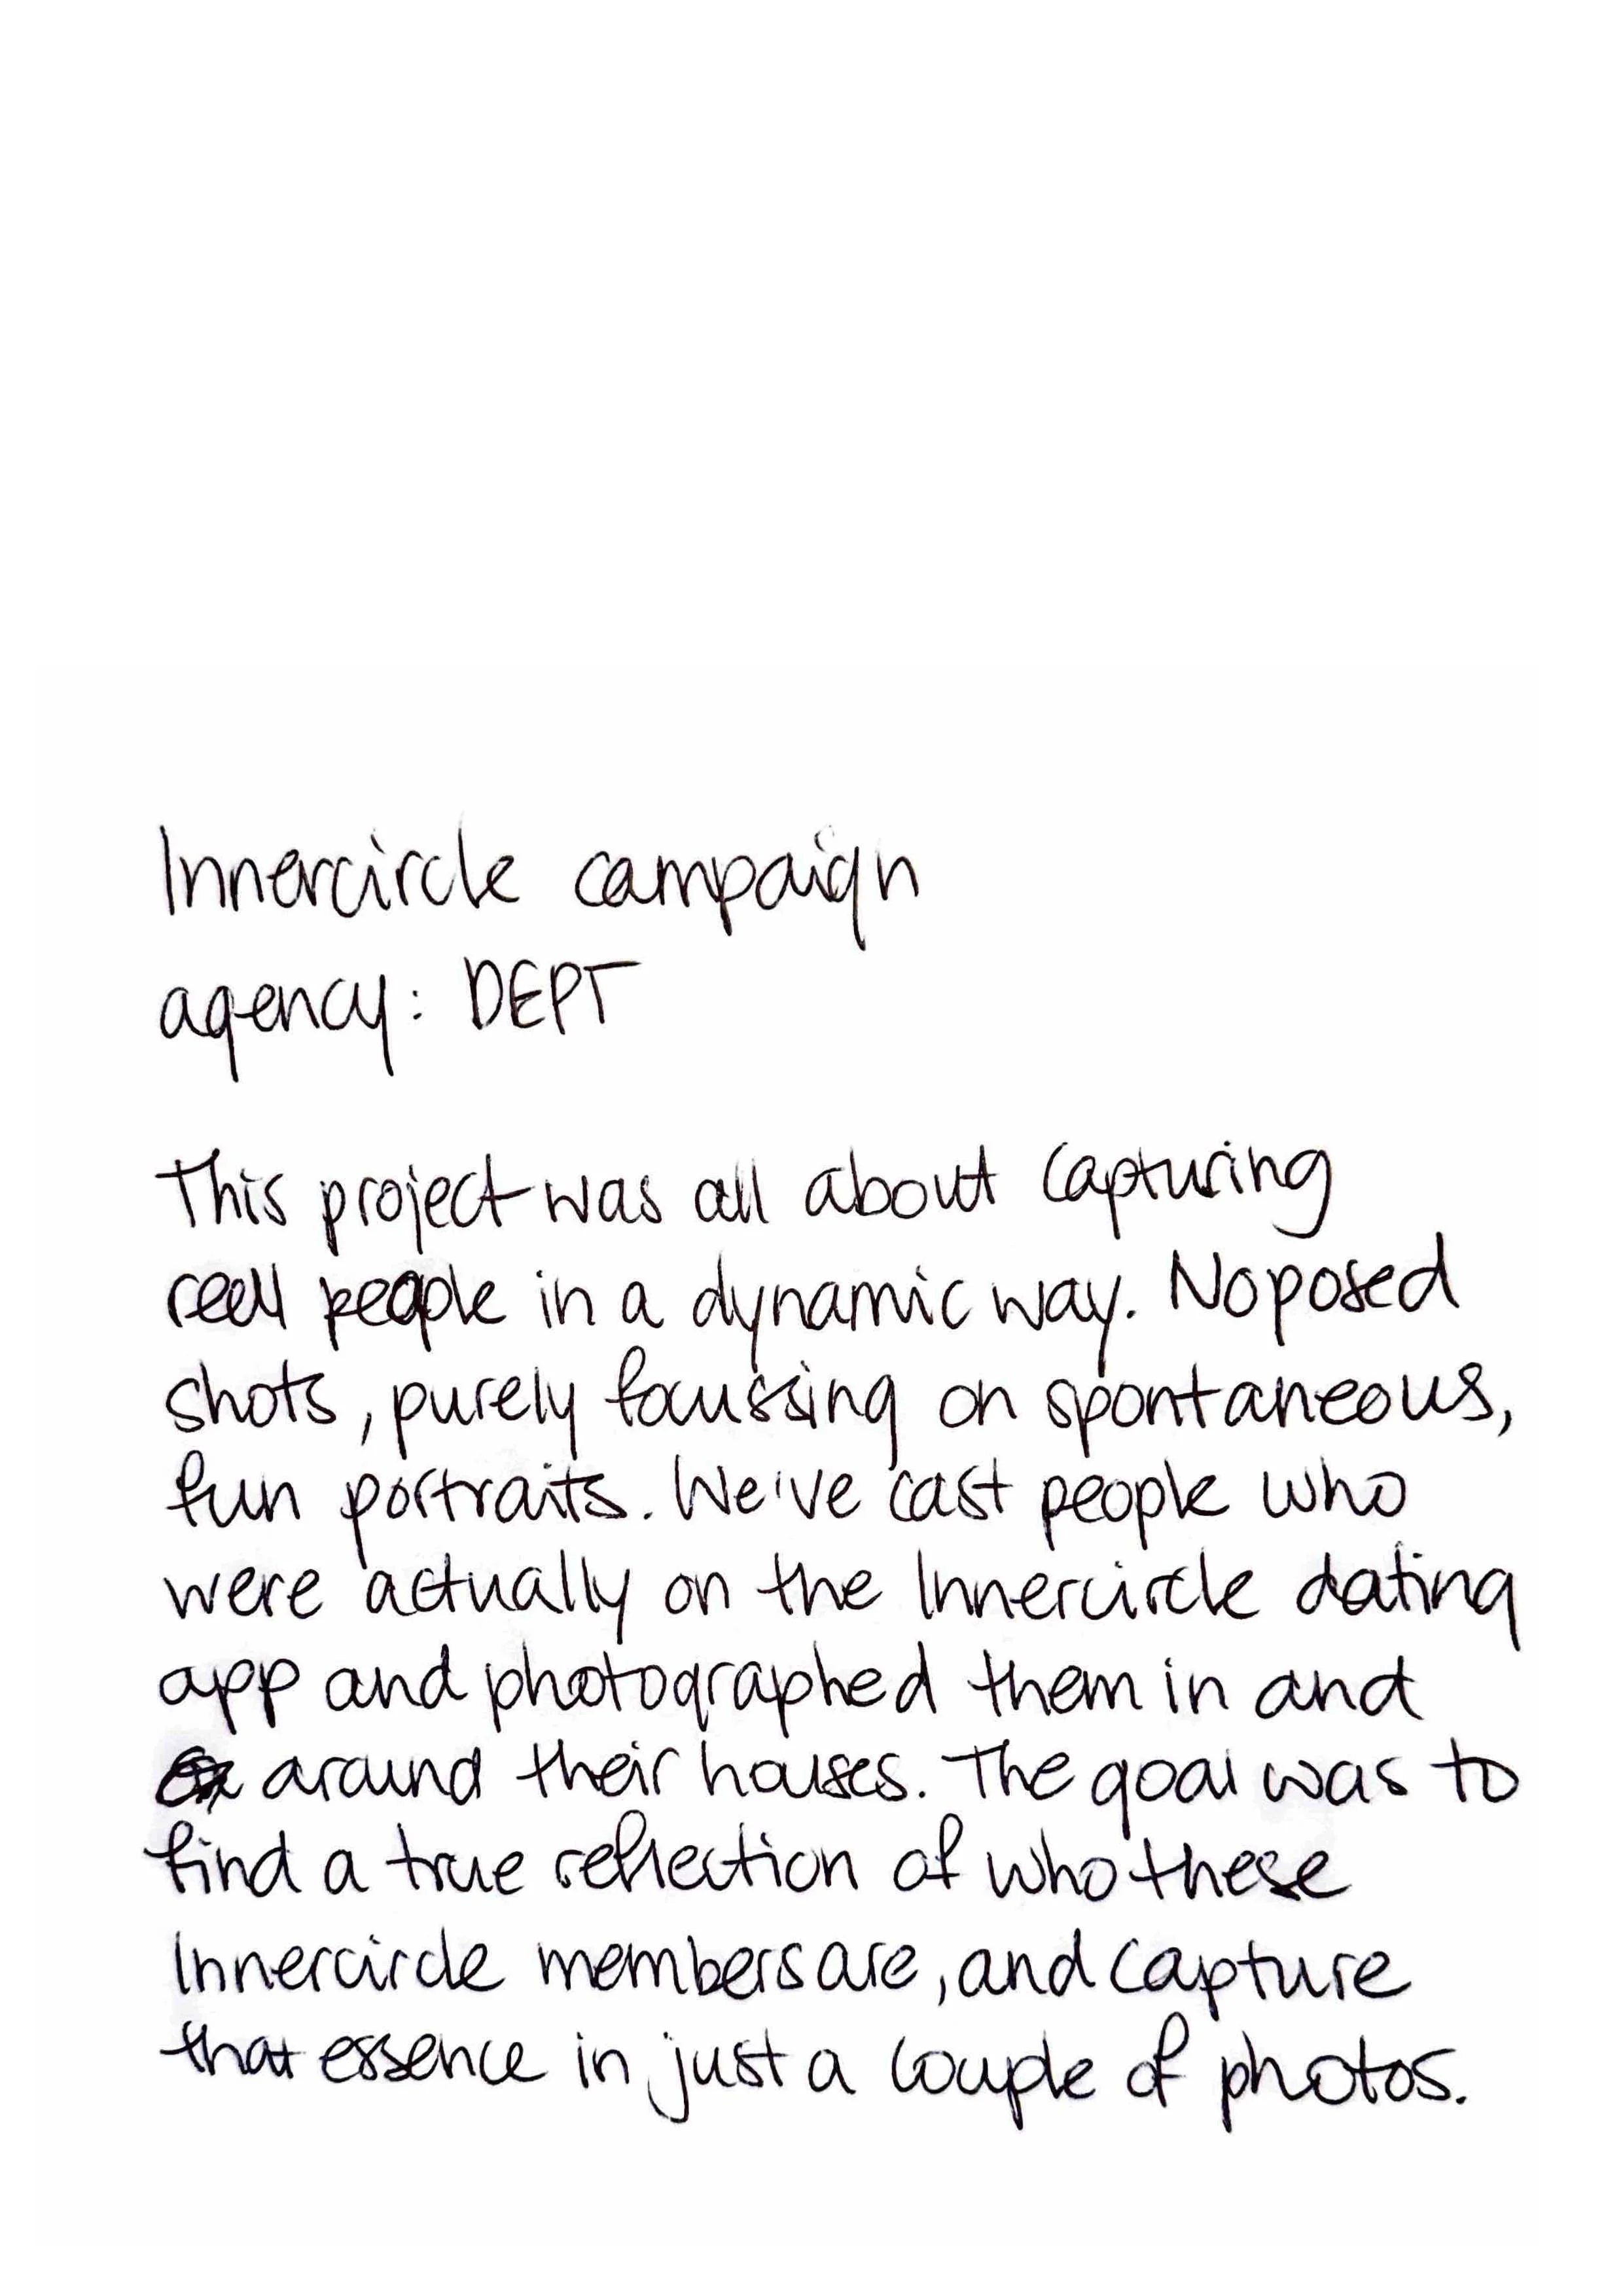 Innercircle campaign
agency: DEPT
This project was all about capturing
real people in a dynamic way. No posed
shots, purely focussing on spontaneous,
fun portraits. We've cast people who
were actually on the Innercircle dating
app and photographed them in and
around their houses. The goal was to
find a true reflection of who these
Innercircle members are, and capture
that essence in just a couple of photos.